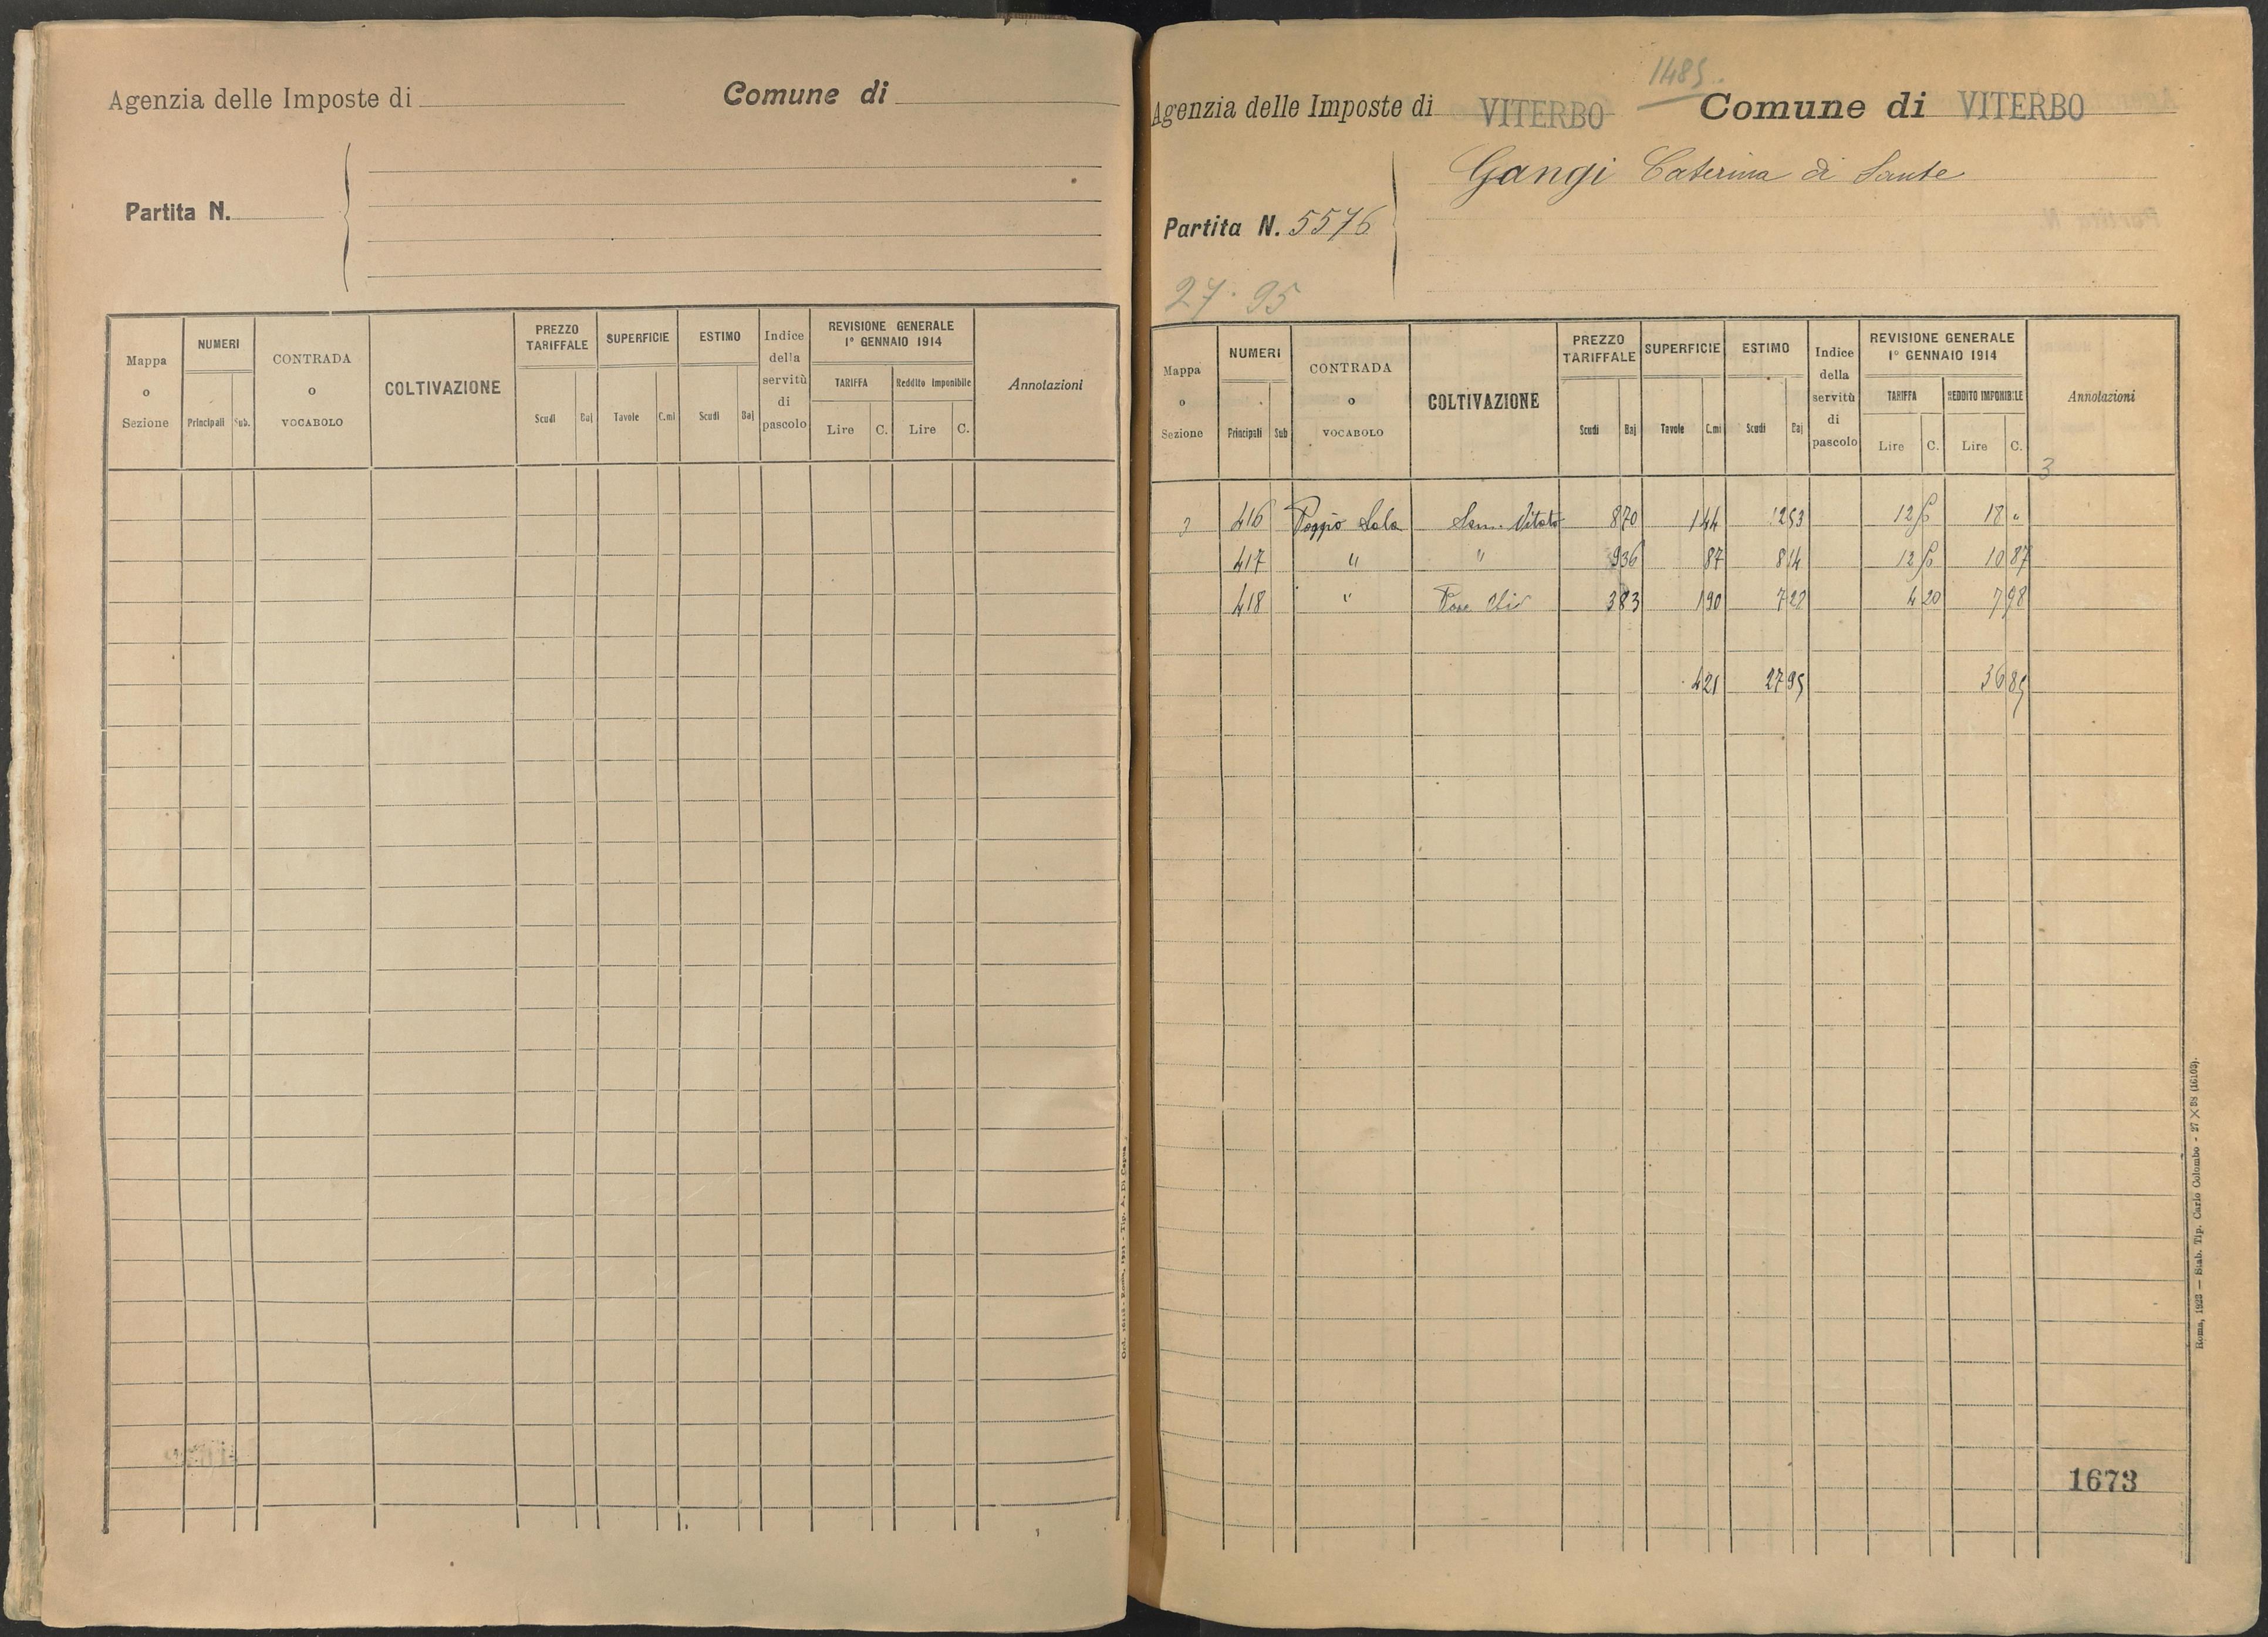 Agenzia delle Imposte di Comune di
Partita N.
Mappa o Sezione NUMERI Principali Sub. CONTRADA o VOCABOLO COLTIVAZIONE PREZZO TARIFFALE Scudi Baj SUPERFICIE Tavole C.mi ESTIMO Scudi Baj Indice della servitù di pascolo REVISIONE GENERALE 1° GENNAIO 1914 TARIFFA Lire C. Reddito Imponibile Lire C. Annotazioni
1485
Agenzia delle Imposte di VITERBO Comune di VITERBO
Gangi Caterina di Sante
Partita N. 5576
27. 95
Mappa o Sezione NUMERI Principali Sub CONTRADA o VOCABOLO COLTIVAZIONE PREZZO TARIFFALE Scudi Baj SUPERFICIE Tavole C.mi ESTIMO Scudi Baj Indice della servitù di pascolo REVISIONE GENERALE 1° GENNAIO 1914 TARIFFA Lire C. REDDITO IMPONIBILE Lire C. Annotazioni
3
3 416 Poggio Sala Sem. Vitato 8 70 1 44 12 53 12 18 "
417 " " 9 36 87 8 14 12 10 87
418 " 3 83 1 90 7 28 4 20 7 98
4 21 27 95 36 85
1673
Roma, 1923 — Stab. Tip. Carlo Colombo - 27 X 38 (16103).